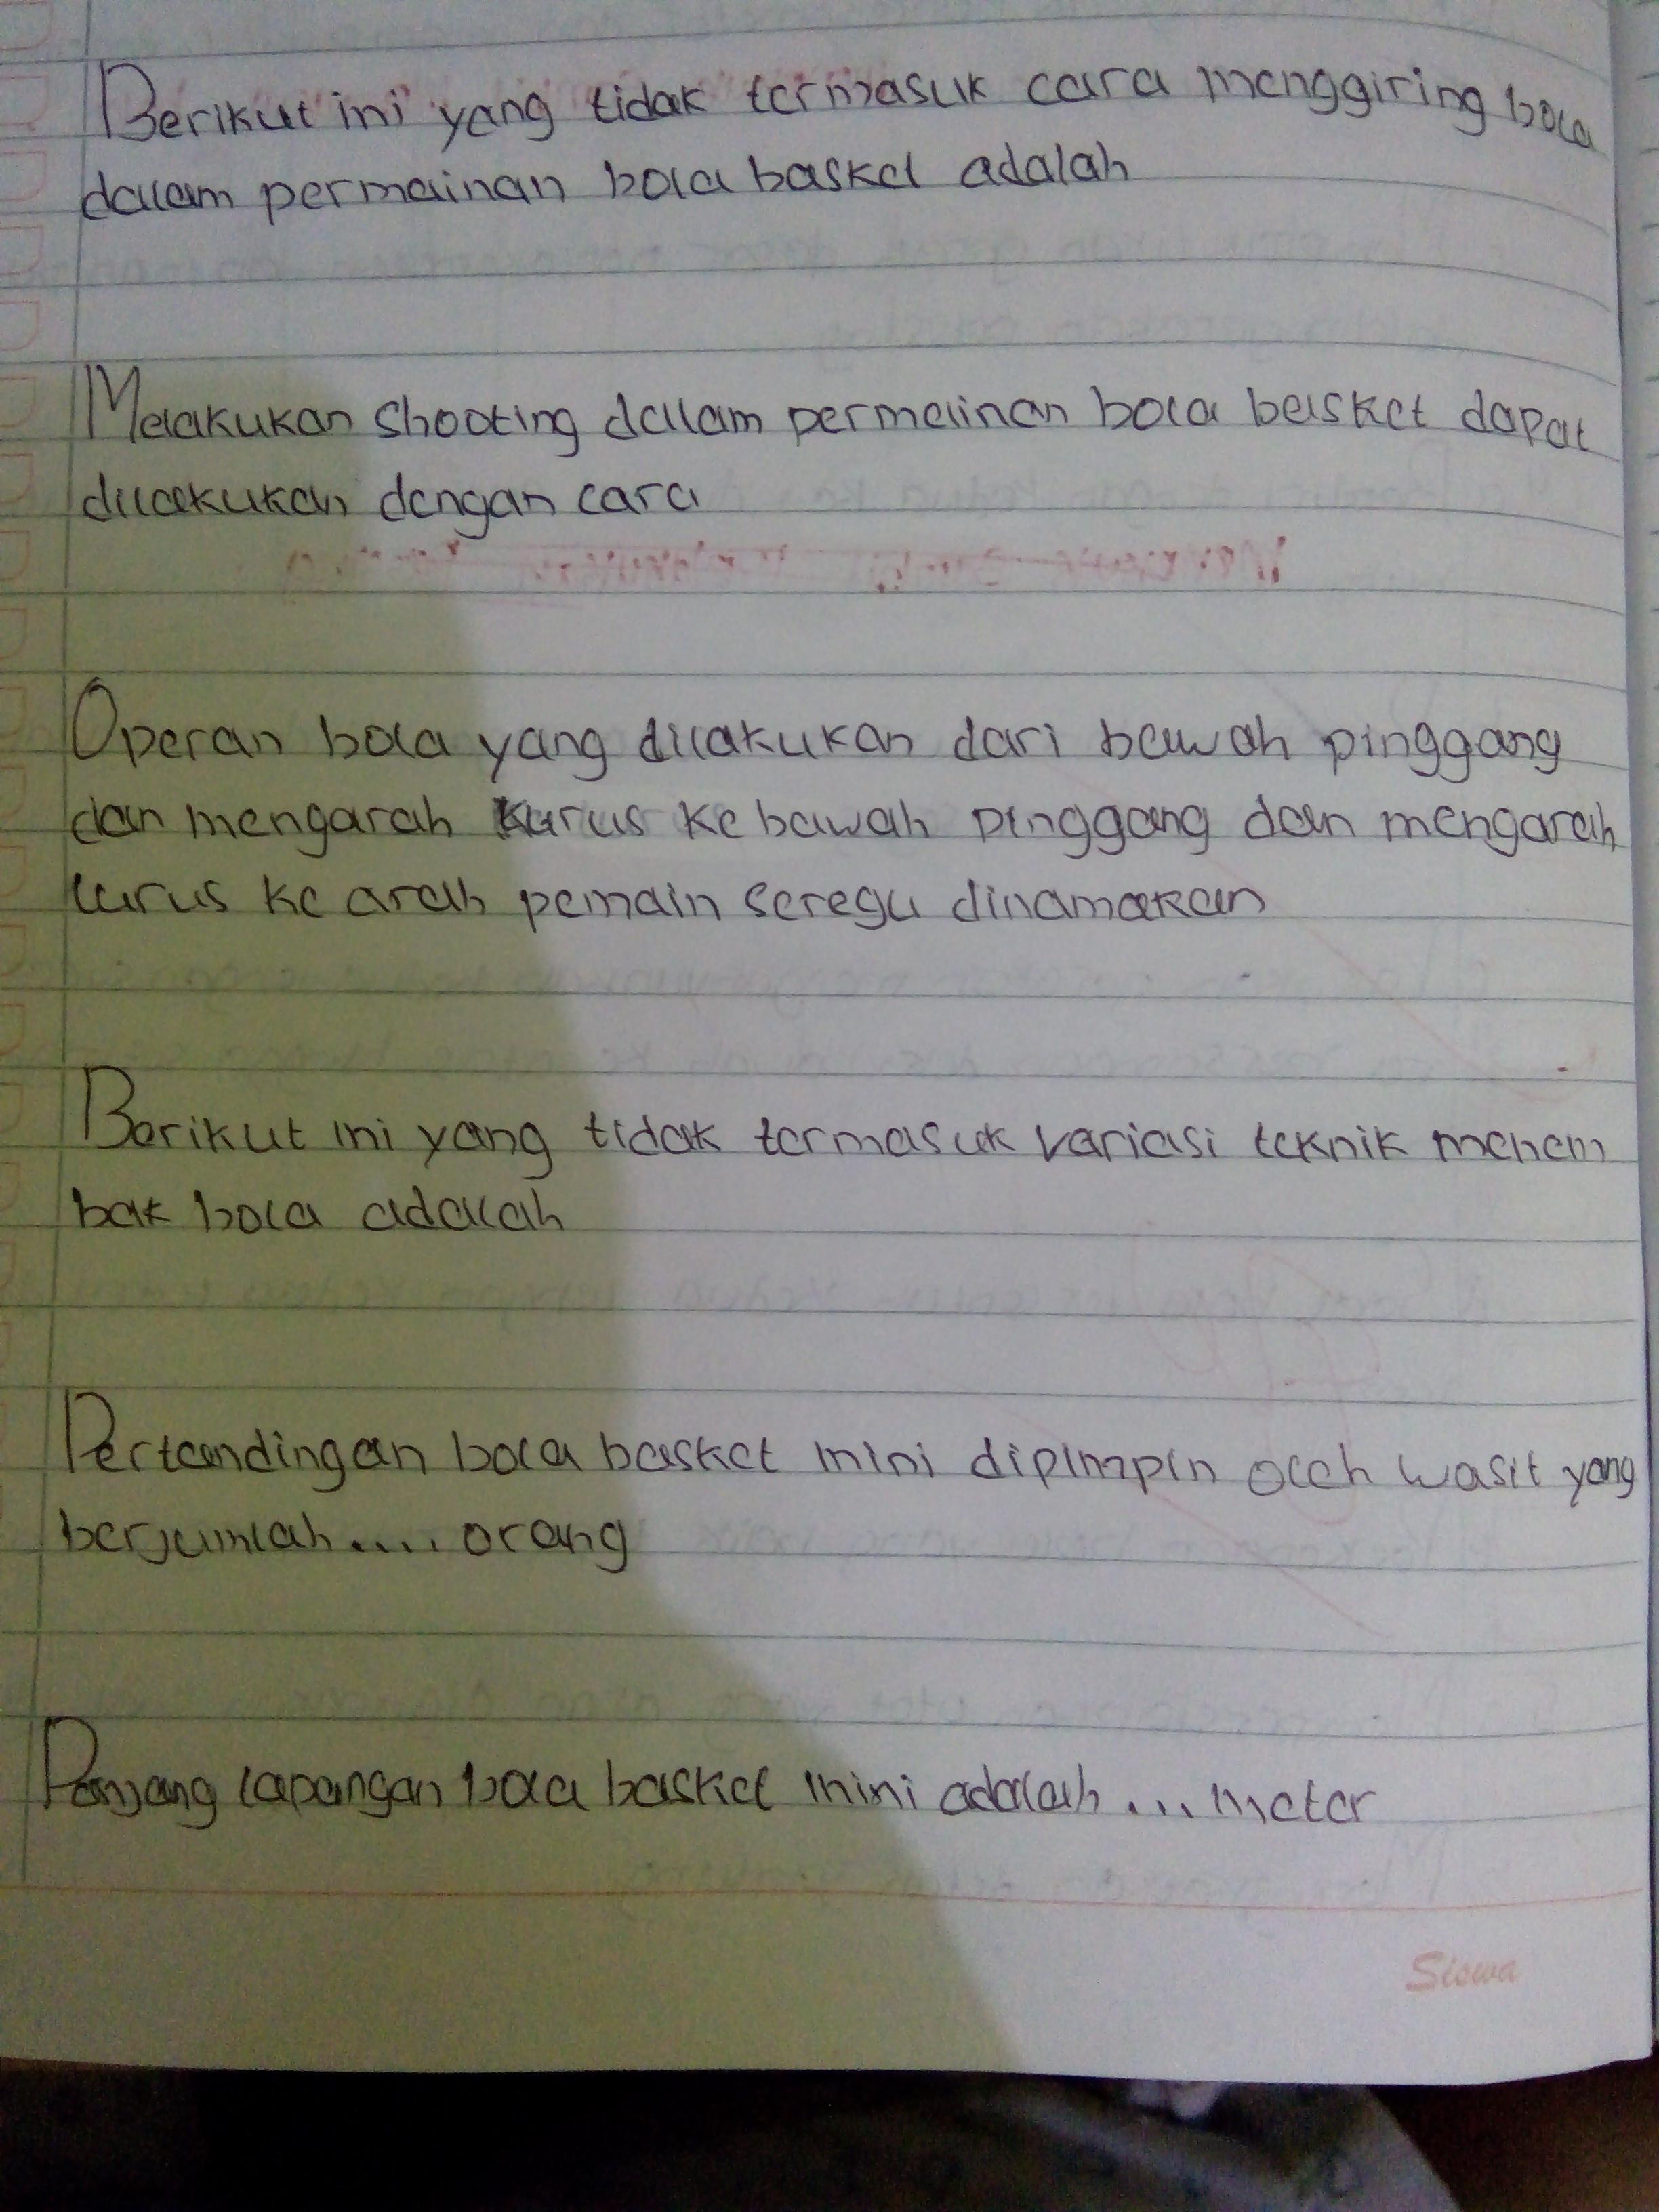 Berikut ini yang tidak termasuk cara menggiring bola
dalam permainan bola basket adalah
Melakukan shooting dalam permainan bola basket dapat
dilakukan dengan cara
Operan bola yang dilakukan dari bawah pinggang
dan mengarah kurus ke bawah pinggang dan mengarah
lurus ke arah pemain seregu dinamakan
Berikut ini yang tidak termasuk variasi teknik menem
bak bola adalah
Pertandingan bola basket mini dipimpin oleh wasit yang
berjumlah.... orang
Panjang lapangan bola basket mini adalah ... meter
Siswa